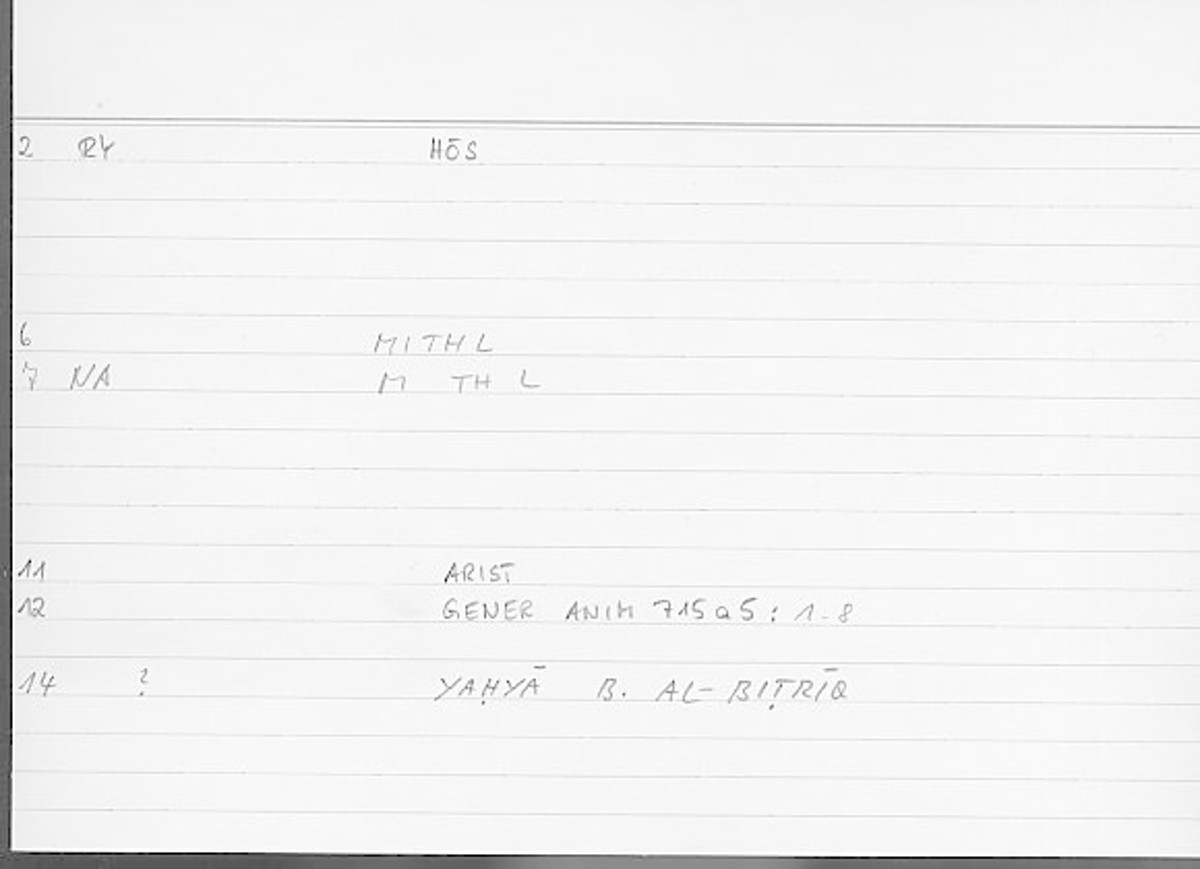 2 RY HŌS
6 MITHL
7 NA M TH L
11 ARIST
12 GENER ANIM 715a5 : 1-8
14 ? YAḤYĀ B. AL-BIṬRĪQ